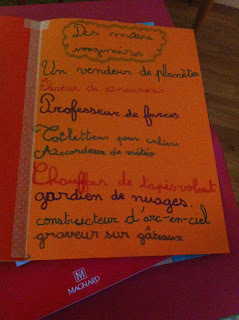 Des métiers
imaginaires
Un vendeur de planètes
Éleveur de dinosaures
Professeur de farces
Toiletteur pour cahier
Accordeur de météo
Chauffeur de tapis volant
gardien de nuages.
constructeur d'arc-en-ciel
graveur sur gâteaux
M
MAGNARD